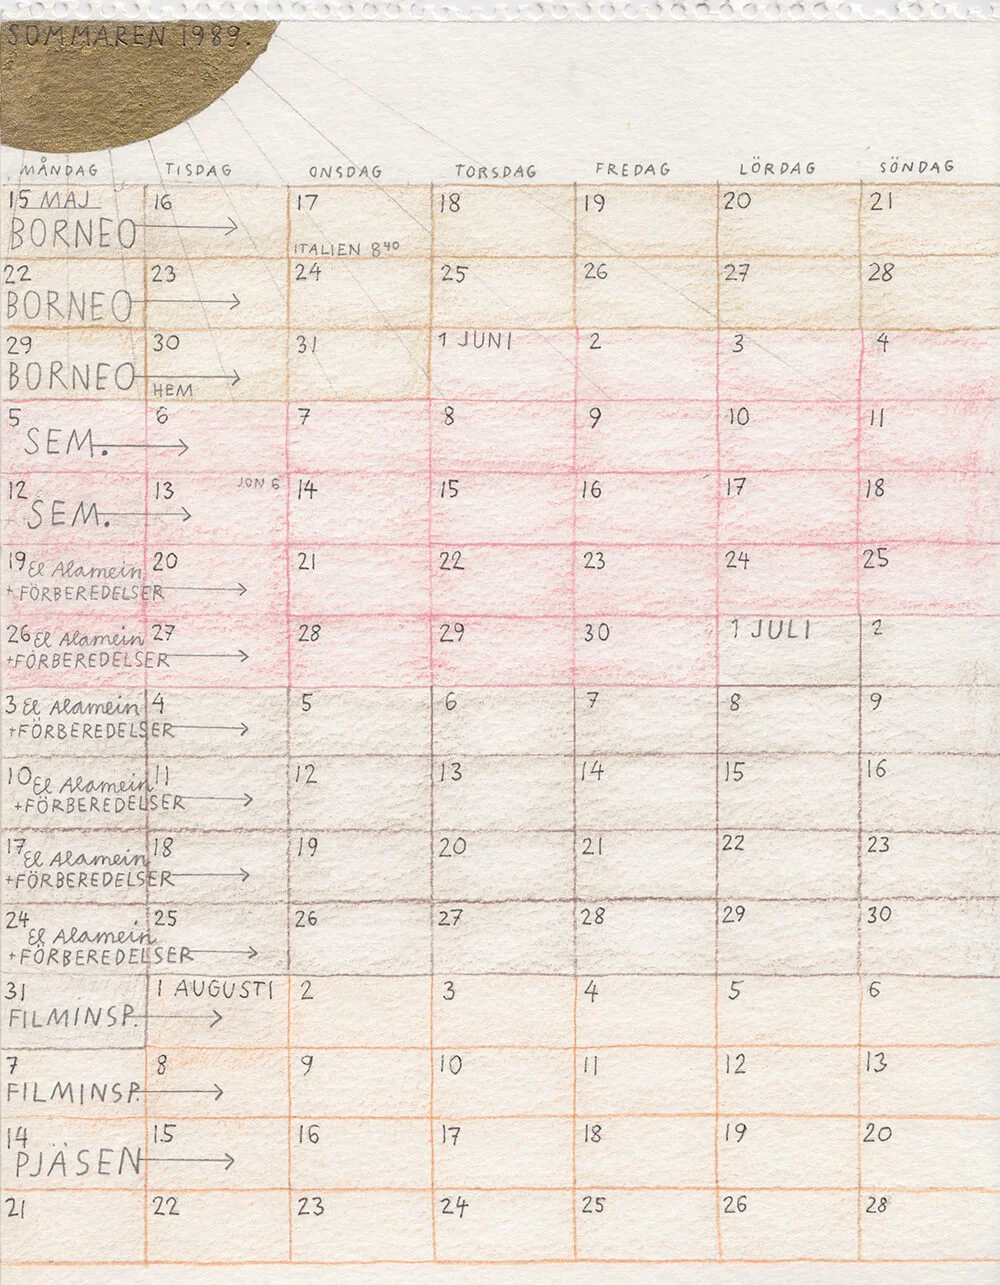 SOMMAREN 1989.
MÅNDAG TISDAG ONSDAG TORSDAG FREDAG LÖRDAG SÖNDAG
15 MAJ 16 17 18 19 20 21
BORNEO
ITALIEN 8 40
22 23 24 25 26 27 28
BORNEO
29 30 31 1 JUNI 2 3 4
BORNEO
HEM
5 6 7 8 9 10 11
SEM.
12 13 JON 6 14 15 16 17 18
SEM.
19 20 21 22 23 24 25
El Alamein
+FÖRBEREDELSER
26 27 28 29 30 1 JULI 2
El Alamein
+FÖRBEREDELSER
3 4 5 6 7 8 9
El Alamein
+FÖRBEREDELSER
10 11 12 13 14 15 16
El Alamein
+FÖRBEREDELSER
17 18 19 20 21 22 23
El Alamein
+FÖRBEREDELSER
24 25 26 27 28 29 30
El Alamein
+FÖRBEREDELSER
31 1 AUGUSTI 2 3 4 5 6
FILMINSP.
7 8 9 10 11 12 13
FILMINSP.
14 15 16 17 18 19 20
PJÄSEN
21 22 23 24 25 26 28